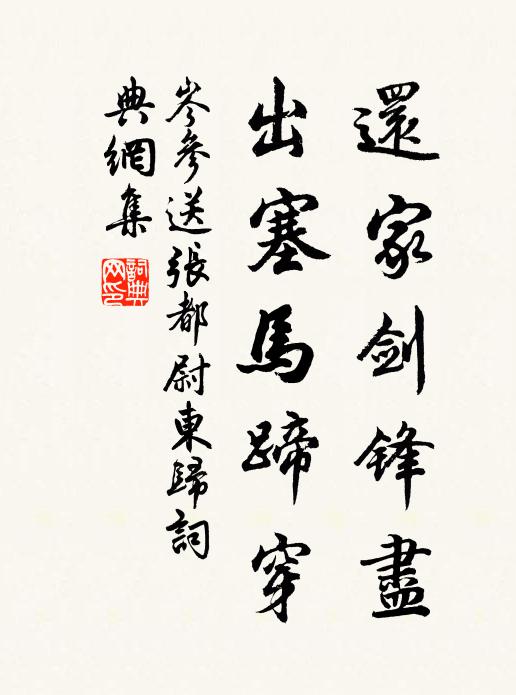 還家劍鋒盡
出塞馬蹄穿
岑參送張都尉東歸詞
典網集
詞典
网印